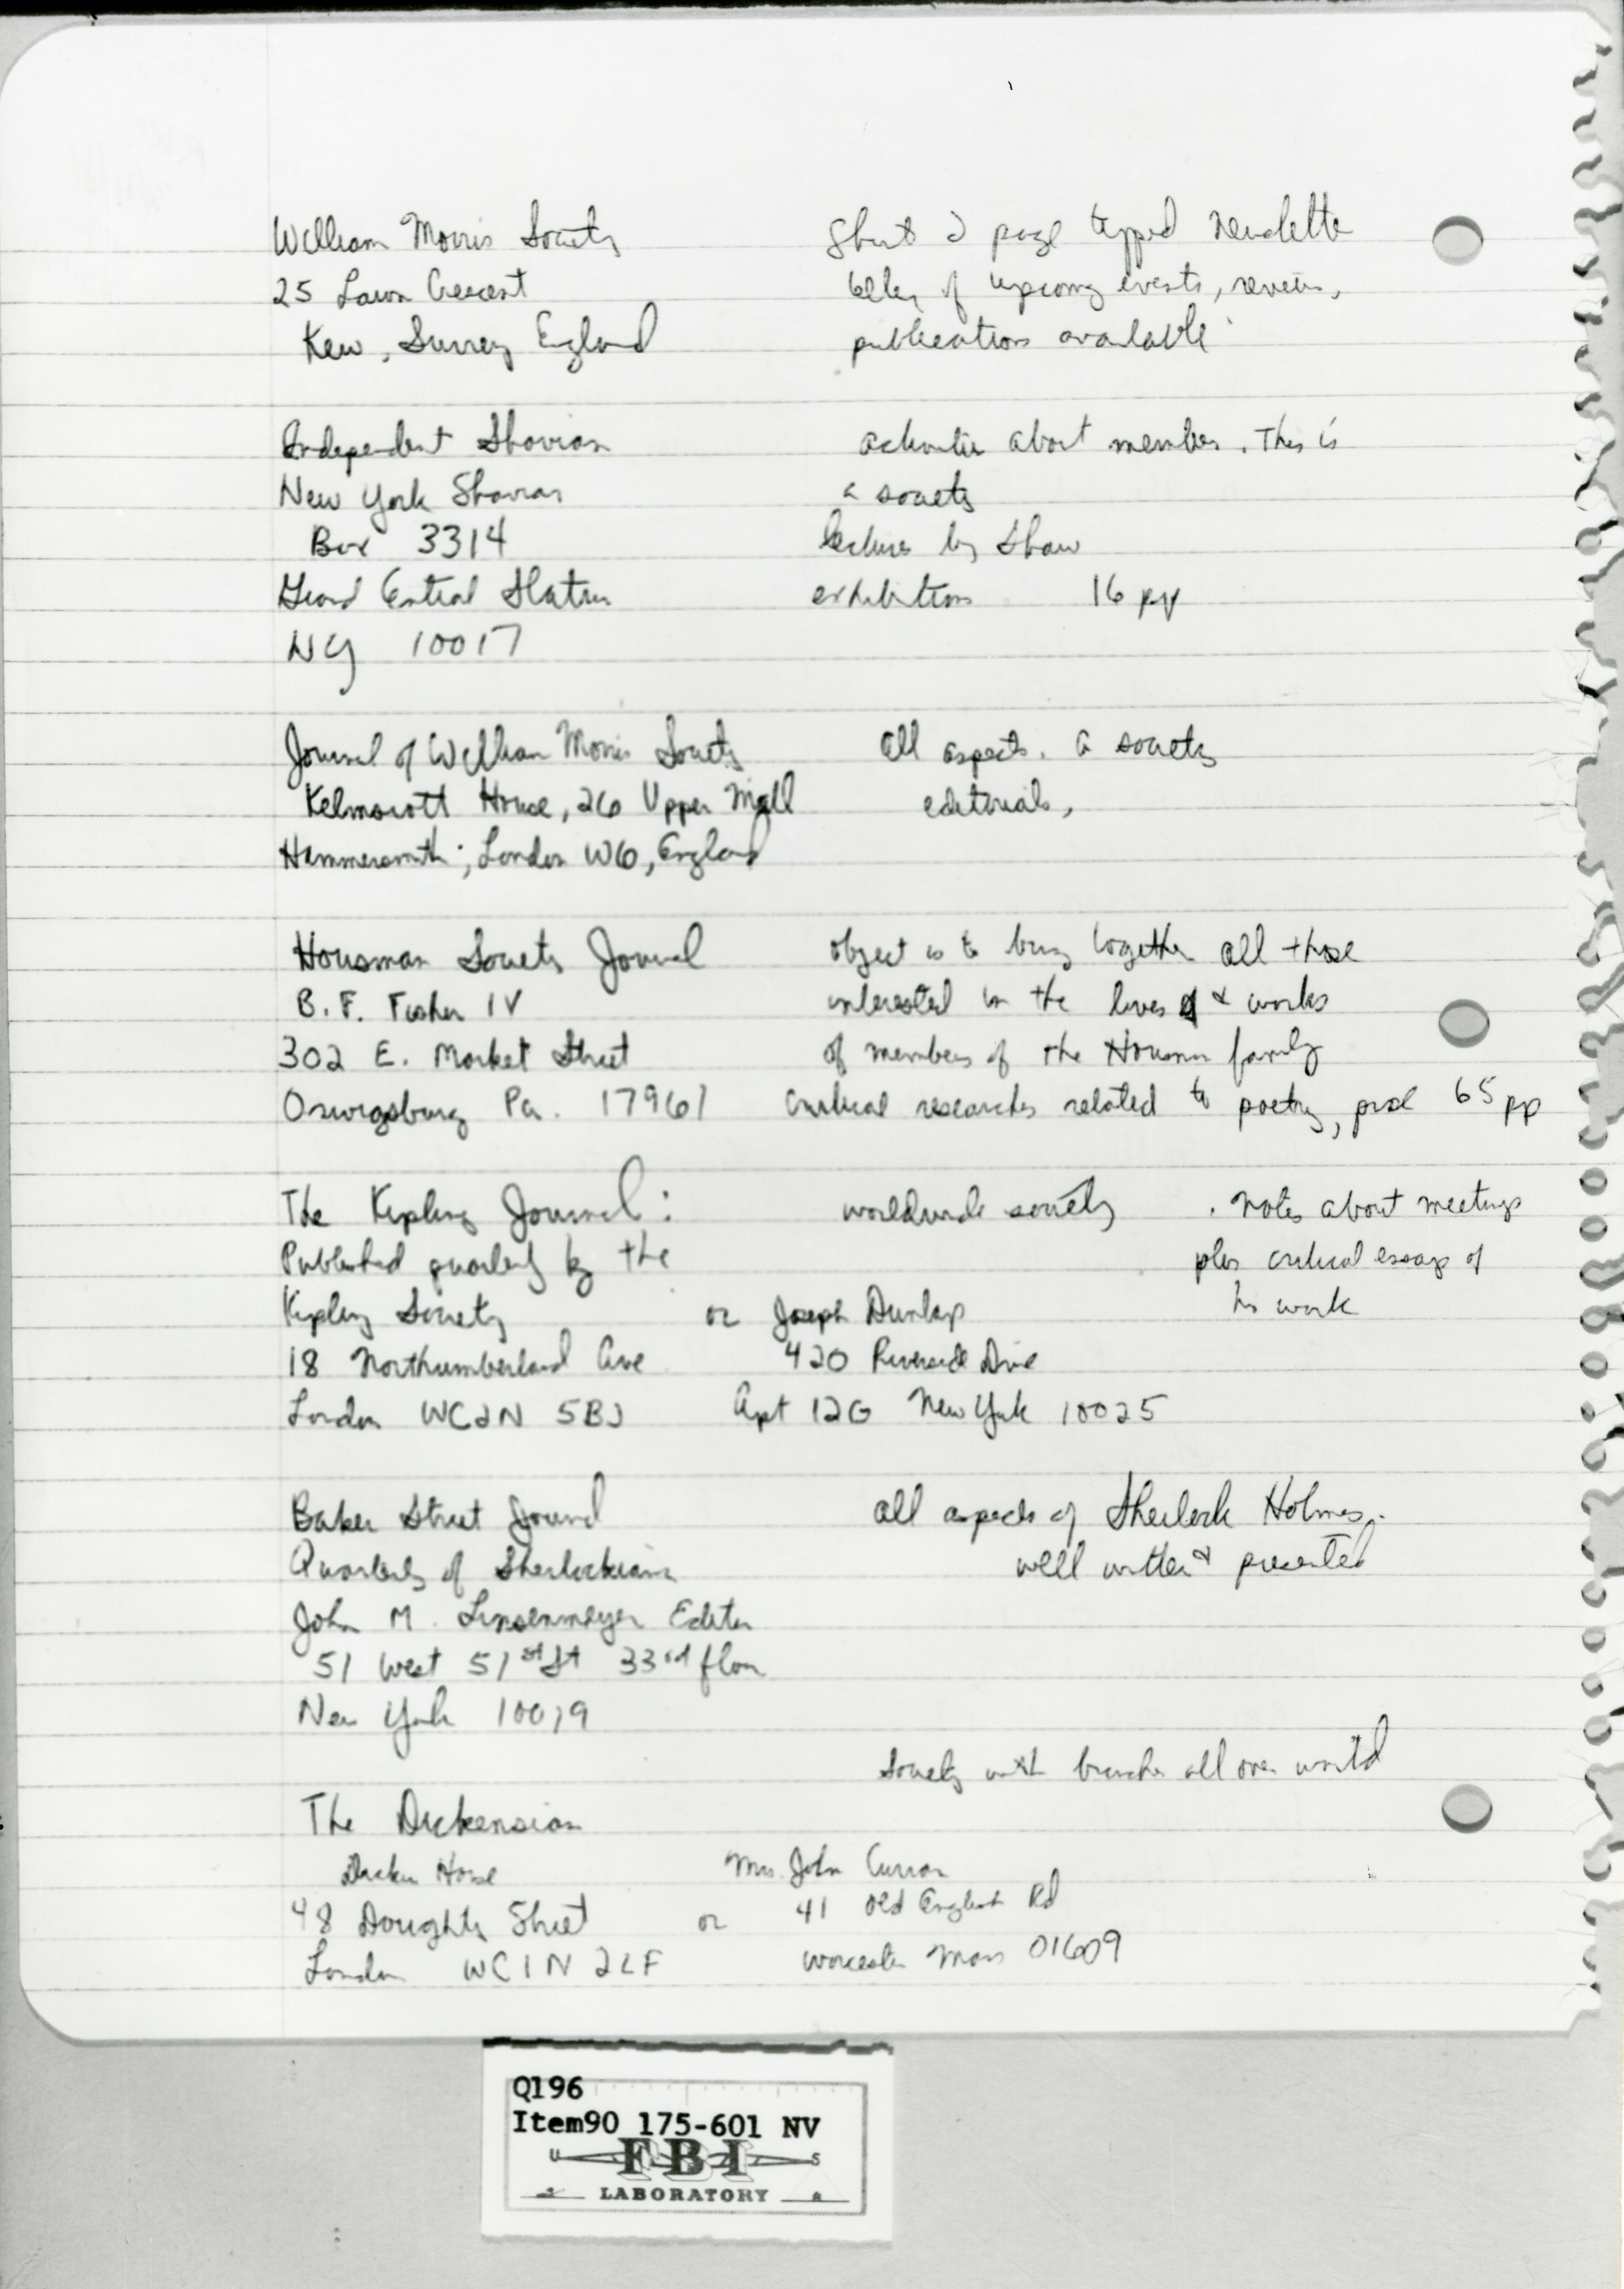 William Morris Society
25 Lawn Crescent
Kew, Surrey England
Short 2 page typed
of upcoming events, reviews,
publications available
Independent Shavian
New York Shavian
Box 3314
Grand Central Station
NY 10017
activities about members. This is
a society
lectures by Shaw
exhibitions 16 pp
Journal of William Morris Society
Kelmscott House, 26 Upper Mall
Hammersmith; London W6, England
All aspects. a society
editorials,
Housman Society Journal
B. F. Fisher IV
302 E. Market Street
Orwigsburg Pa. 17961
object is to bring together all those
interested in the lives & works
of members of the Housman family
critical researches related to poetry, prose 65 pp
The Kipling Journal:
Published quarterly by the
Kipling Society
18 Northumberland Ave
London WC2N 5BJ
worldwide society
. Notes about meetings
plus critical essays of
his work
or Joseph Dunlap
420 Riverside Drive
Apt 12G New York 10025
Baker Street Journal
Quarterly of Sherlockiana
John M. Linsenmeyer Editor
51 West 51st St 33rd floor
New York 10019
all aspects of Sherlock Holmes.
well written & presented
Society with branches all over world
The Dickensian
Dickens House
48 Doughty Street
London WC1N 2LF
or
Mrs. John Curran
41 Old English Rd
Worcester Mass 01609
Q196
Item90 175-601 NV
U S
FBI
LABORATORY